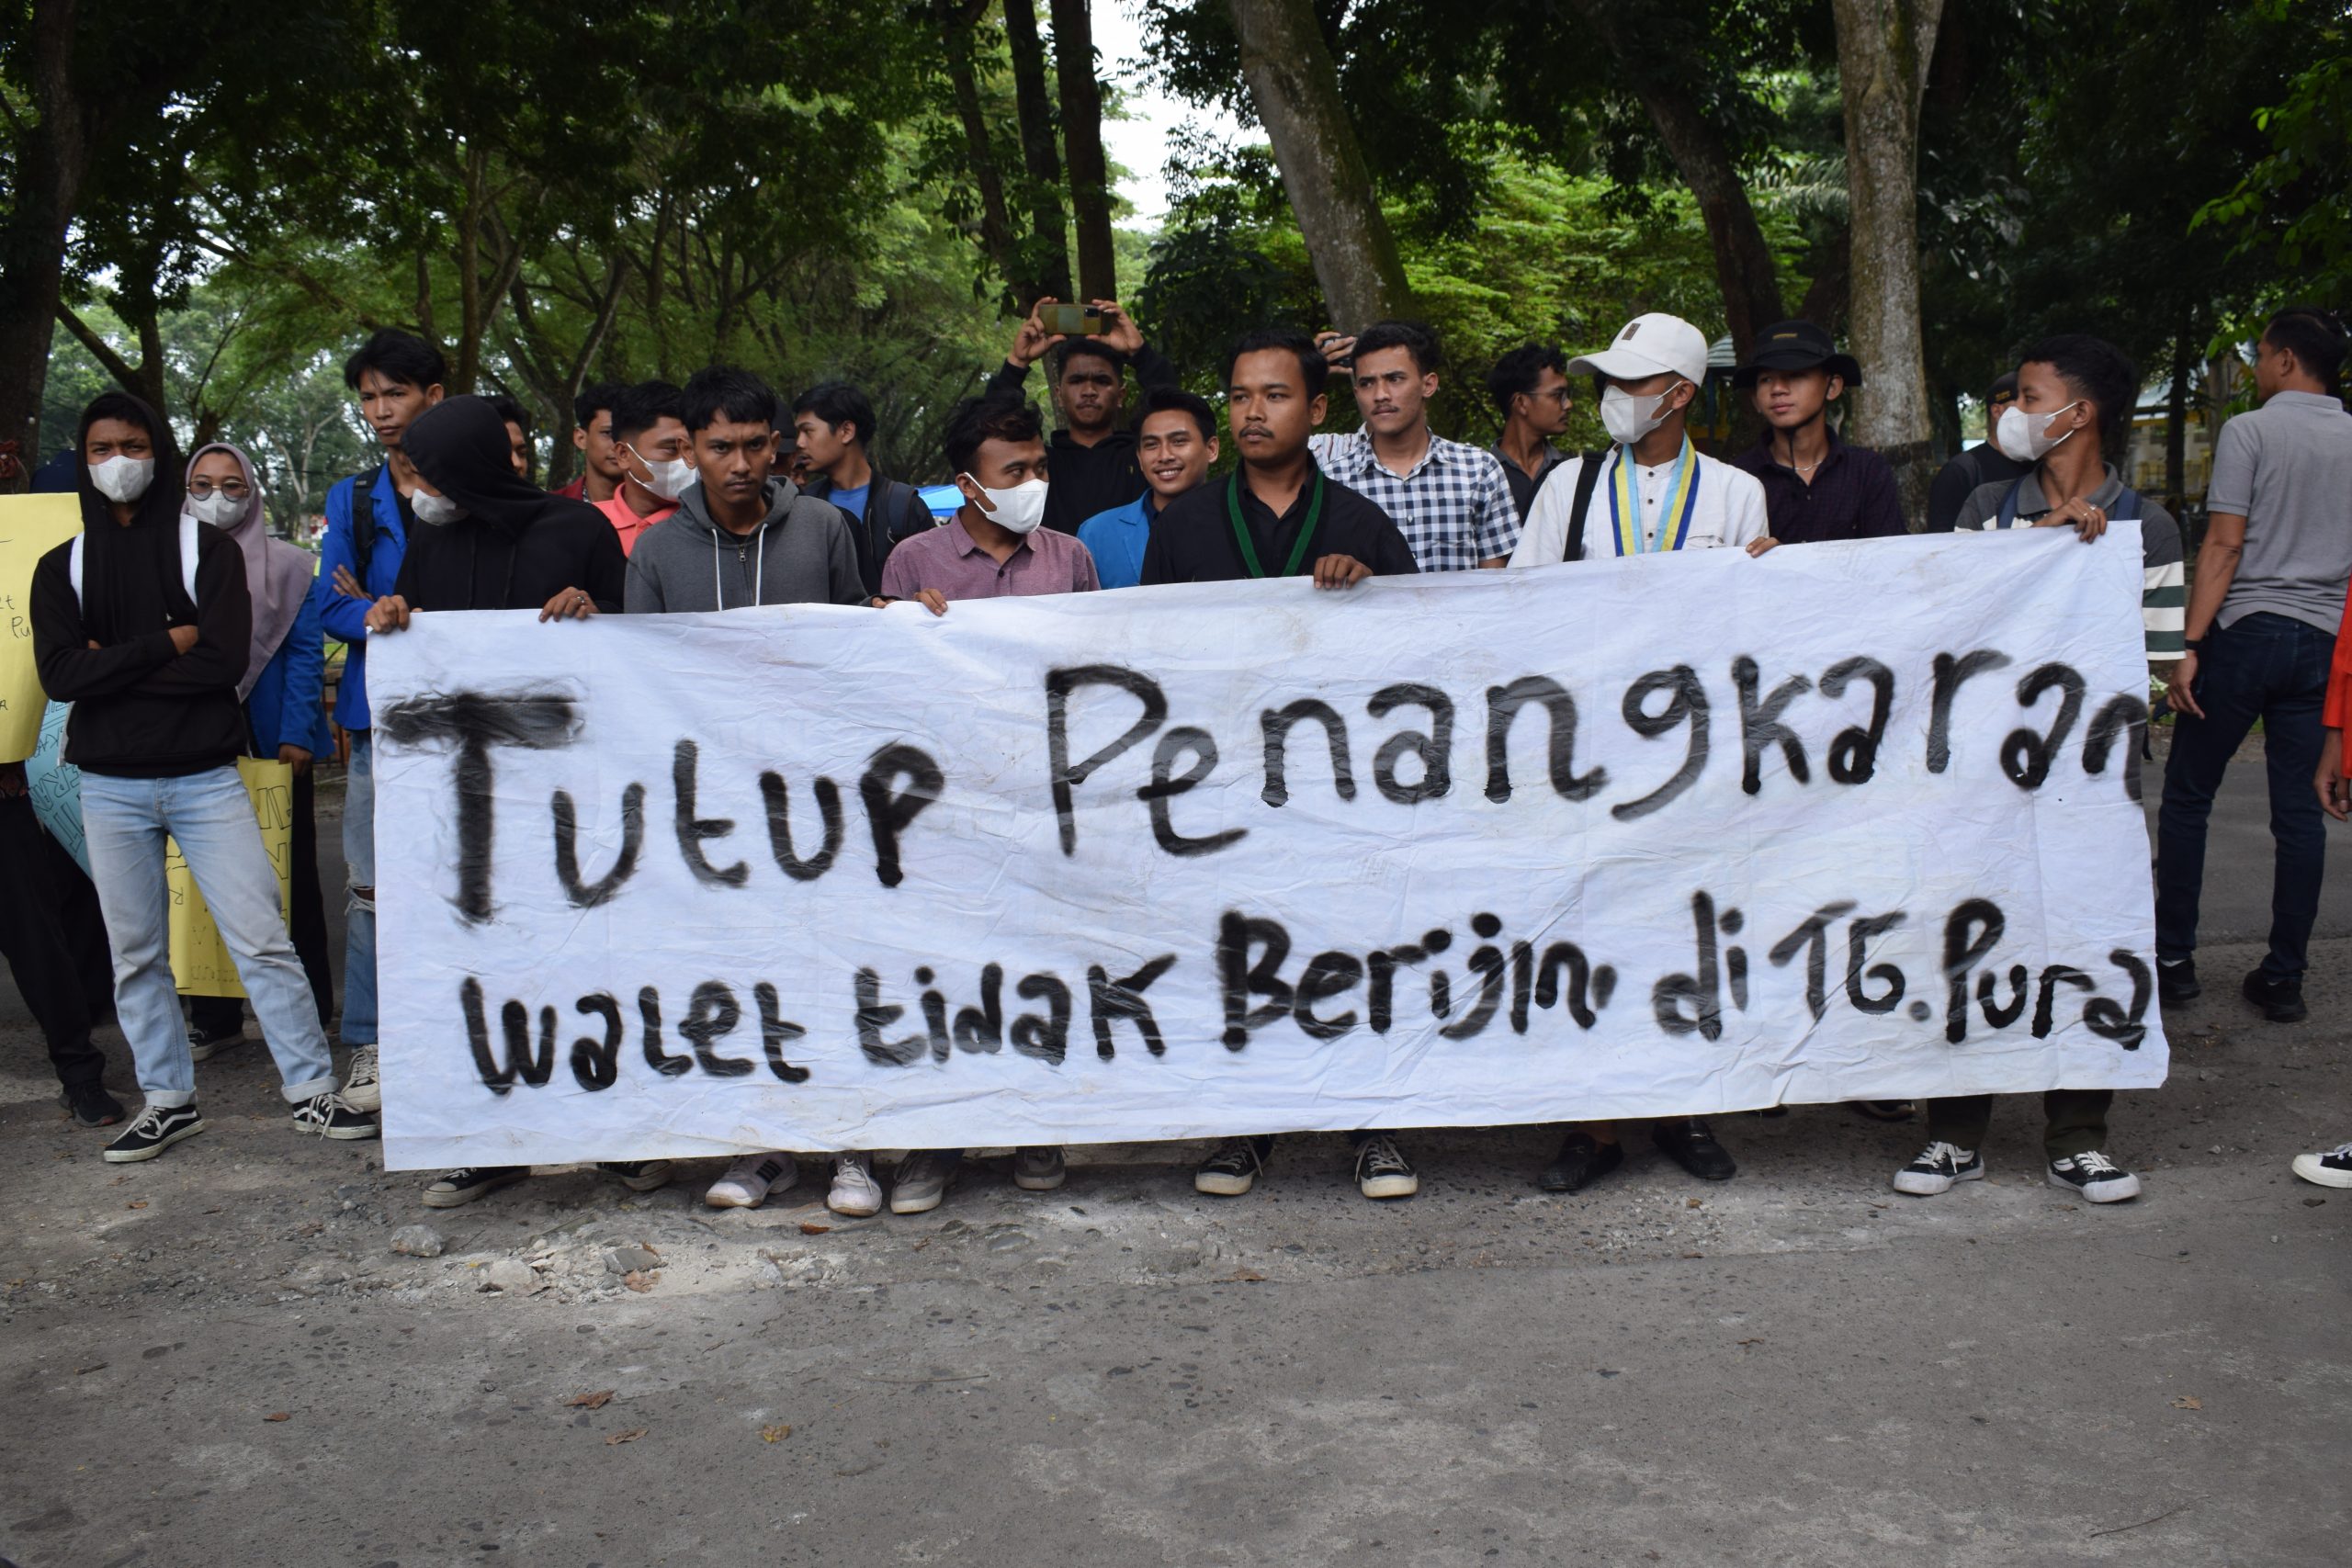 Tutup Penangkaran
Walet tidak Berijin di TG. Pura